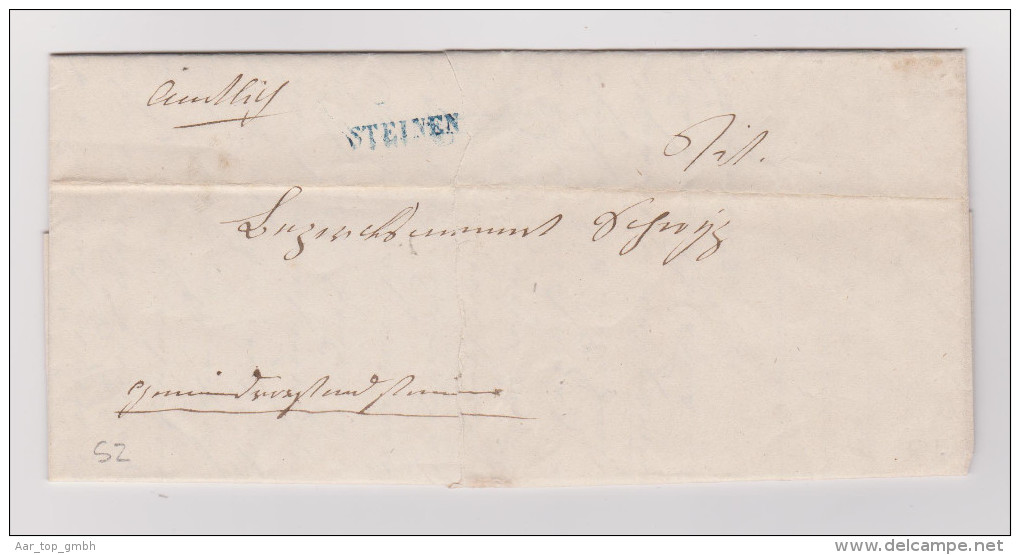 Amtlich
STEINEN
Tit.
Bezirksammt Schwyz
Gemeindsvorstand Steinen
SZ
Aar_top_gmbh
delcampe.net